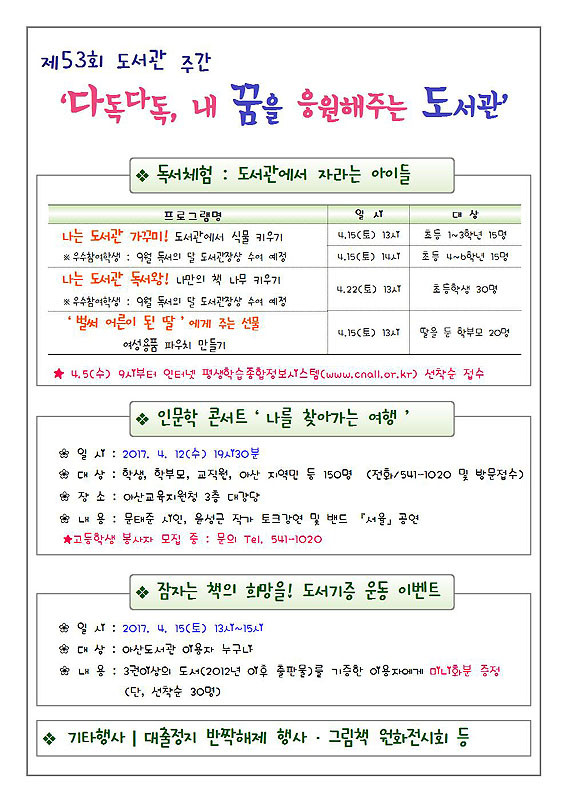 제53회 도서관 주간
‘다독다독, 내 꿈을 응원해주는 도서관’
❖ 독서체험 : 도서관에서 자라는 아이들
프로그램명 일 시 대 상
나는 도서관 가꾸미! 도서관에서 식물 키우기 4.15(토) 13시 초등 1~3학년 15명
※ 우수참여학생 : 9월 독서의 달 도서관장상 수여 예정 4.15(토) 14시 초등 4~6학년 15명
나는 도서관 독서왕! 나만의 책 나무 키우기 4.22(토) 13시 초등학생 30명
※ 우수참여학생 : 9월 독서의 달 도서관장상 수여 예정
‘벌써 어른이 된 딸’에게 주는 선물 4.15(토) 13시 딸을 둔 학부모 20명
여성용품 파우치 만들기
★ 4.5(수) 9시부터 인터넷 평생학습종합정보시스템(www.cnall.or.kr) 선착순 접수
❖ 인문학 콘서트 ‘ 나를 찾아가는 여행 ’
❀ 일 시 : 2017. 4. 12(수) 19시30분
❀ 대 상 : 학생, 학부모, 교직원, 아산 지역민 등 150명 (전화/541-1020 및 방문접수)
❀ 장 소 : 아산교육지원청 3층 대강당
❀ 내 용 : 문태준 시인, 윤성근 작가 토크강연 및 밴드 『서율』 공연
★고등학생 봉사자 모집 중 : 문의 Tel. 541-1020
❖ 잠자는 책의 희망을! 도서기증 운동 이벤트
❀ 일 시 : 2017. 4. 15(토) 13시~15시
❀ 대 상 : 아산도서관 이용자 누구나
❀ 내 용 : 3권이상의 도서(2012년 이후 출판물)를 기증한 이용자에게 미니화분 증정
(단, 선착순 30명)
❖ 기타행사 | 대출정지 반짝해제 행사 · 그림책 원화전시회 등